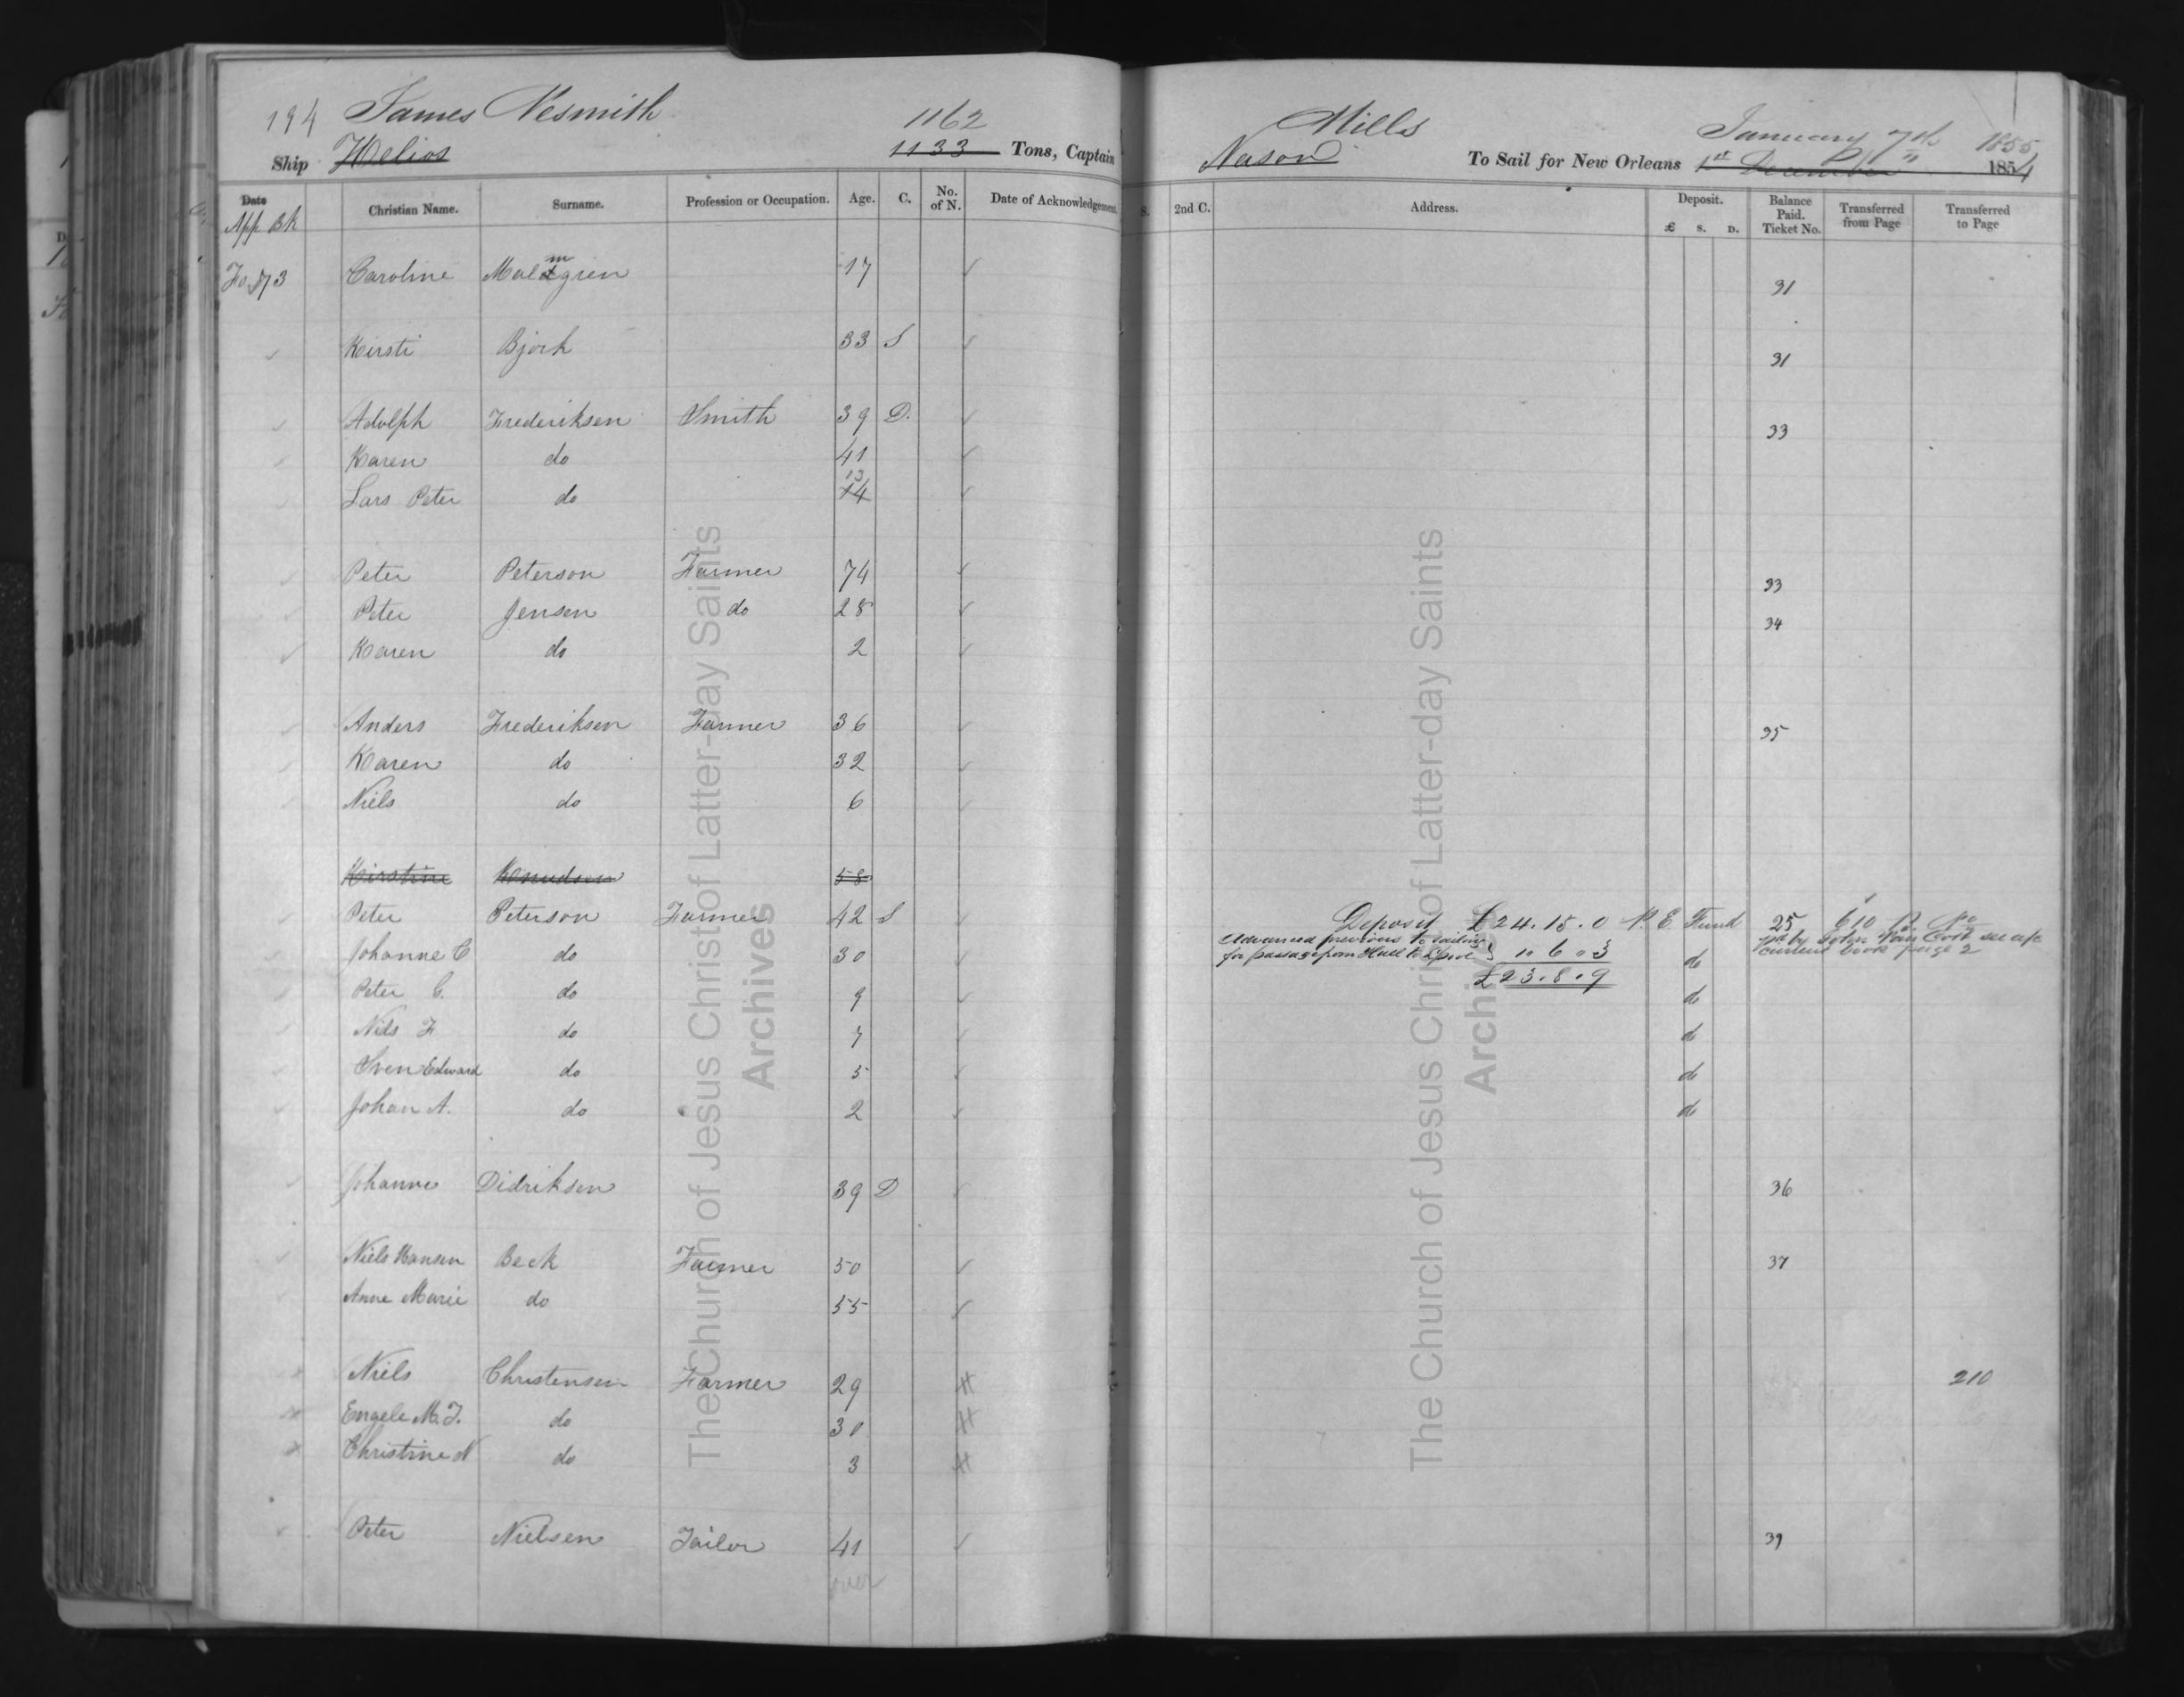 194 James Nesmith 1162 Mills January 7th 1855
Ship Helios 1133 Tons, Captain Nason To Sail for New Orleans 1st December 1854
Date Christian Name. Surname. Profession or Occupation. Age. C. No. of N. Date of Acknowledgement. S. 2nd C. Address. Deposit. £ S. D. Balance Paid. Ticket No. Transferred from Page Transferred to Page
App Bk
Fo 73 Caroline Malmgrien 17 31
Kirsti Bjork 33 S 31
Adolph Frederiksen Smith 39 D. 33
Karen do 41
Lars Peter do 14 13
Peter Peterson Farmer 74 33
Peter Jensen do 28 34
Karen do 2
Anders Frederiksen Farmer 36 35
Karen do 32
Niels do 6
Kirstine Knudsen 58
Peter Peterson Farmer 42 S Deposit £24.15.0 P. E. Fund 25 610
Johanne C do 30 Advanced previous to sailing for passage from Hull to L'pool } 1 " 6 " 3 do by John Van Cott see a/c current book page 2
£23.8.9
Peter C. do 9 do
Nils F do 7 do
Sven Edward do 5 do
Johan A. do 2 do
Johanne Didriksen 39 D 36
Niels Hansen Beck Farmer 50 37
Anne Marie do 55
Niels Christensen Farmer 29 210
Engele M. J. do 30
Christine N do 3
Peter Nielsen Tailor 41 39
over
The Church of Jesus Christ of Latter-day Saints
Archives
The Church of Jesus Christ of Latter-day Saints
Archives